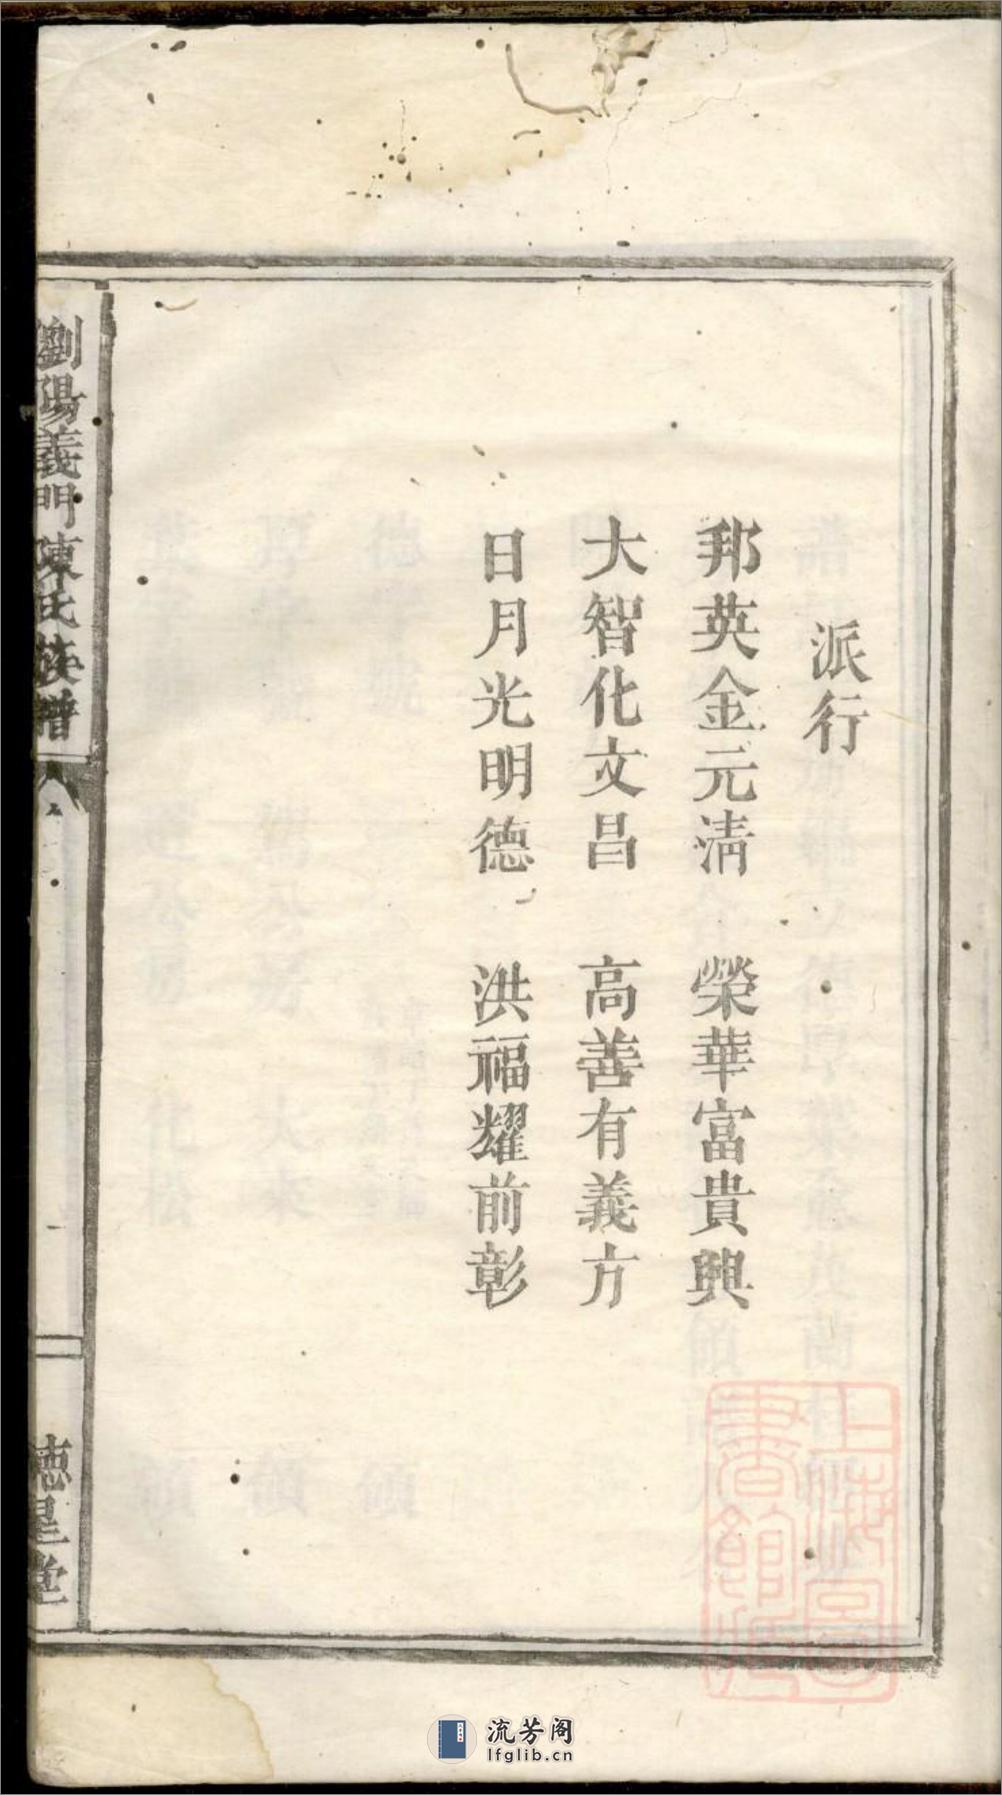 派行
邦英金元清　榮華富貴興
大智化文昌　高善有義方
日月光明德　洪福耀前彰
瀏陽義門陳氏族譜
德星堂
上海圖書館藏
流芳阁
lfglib.cn